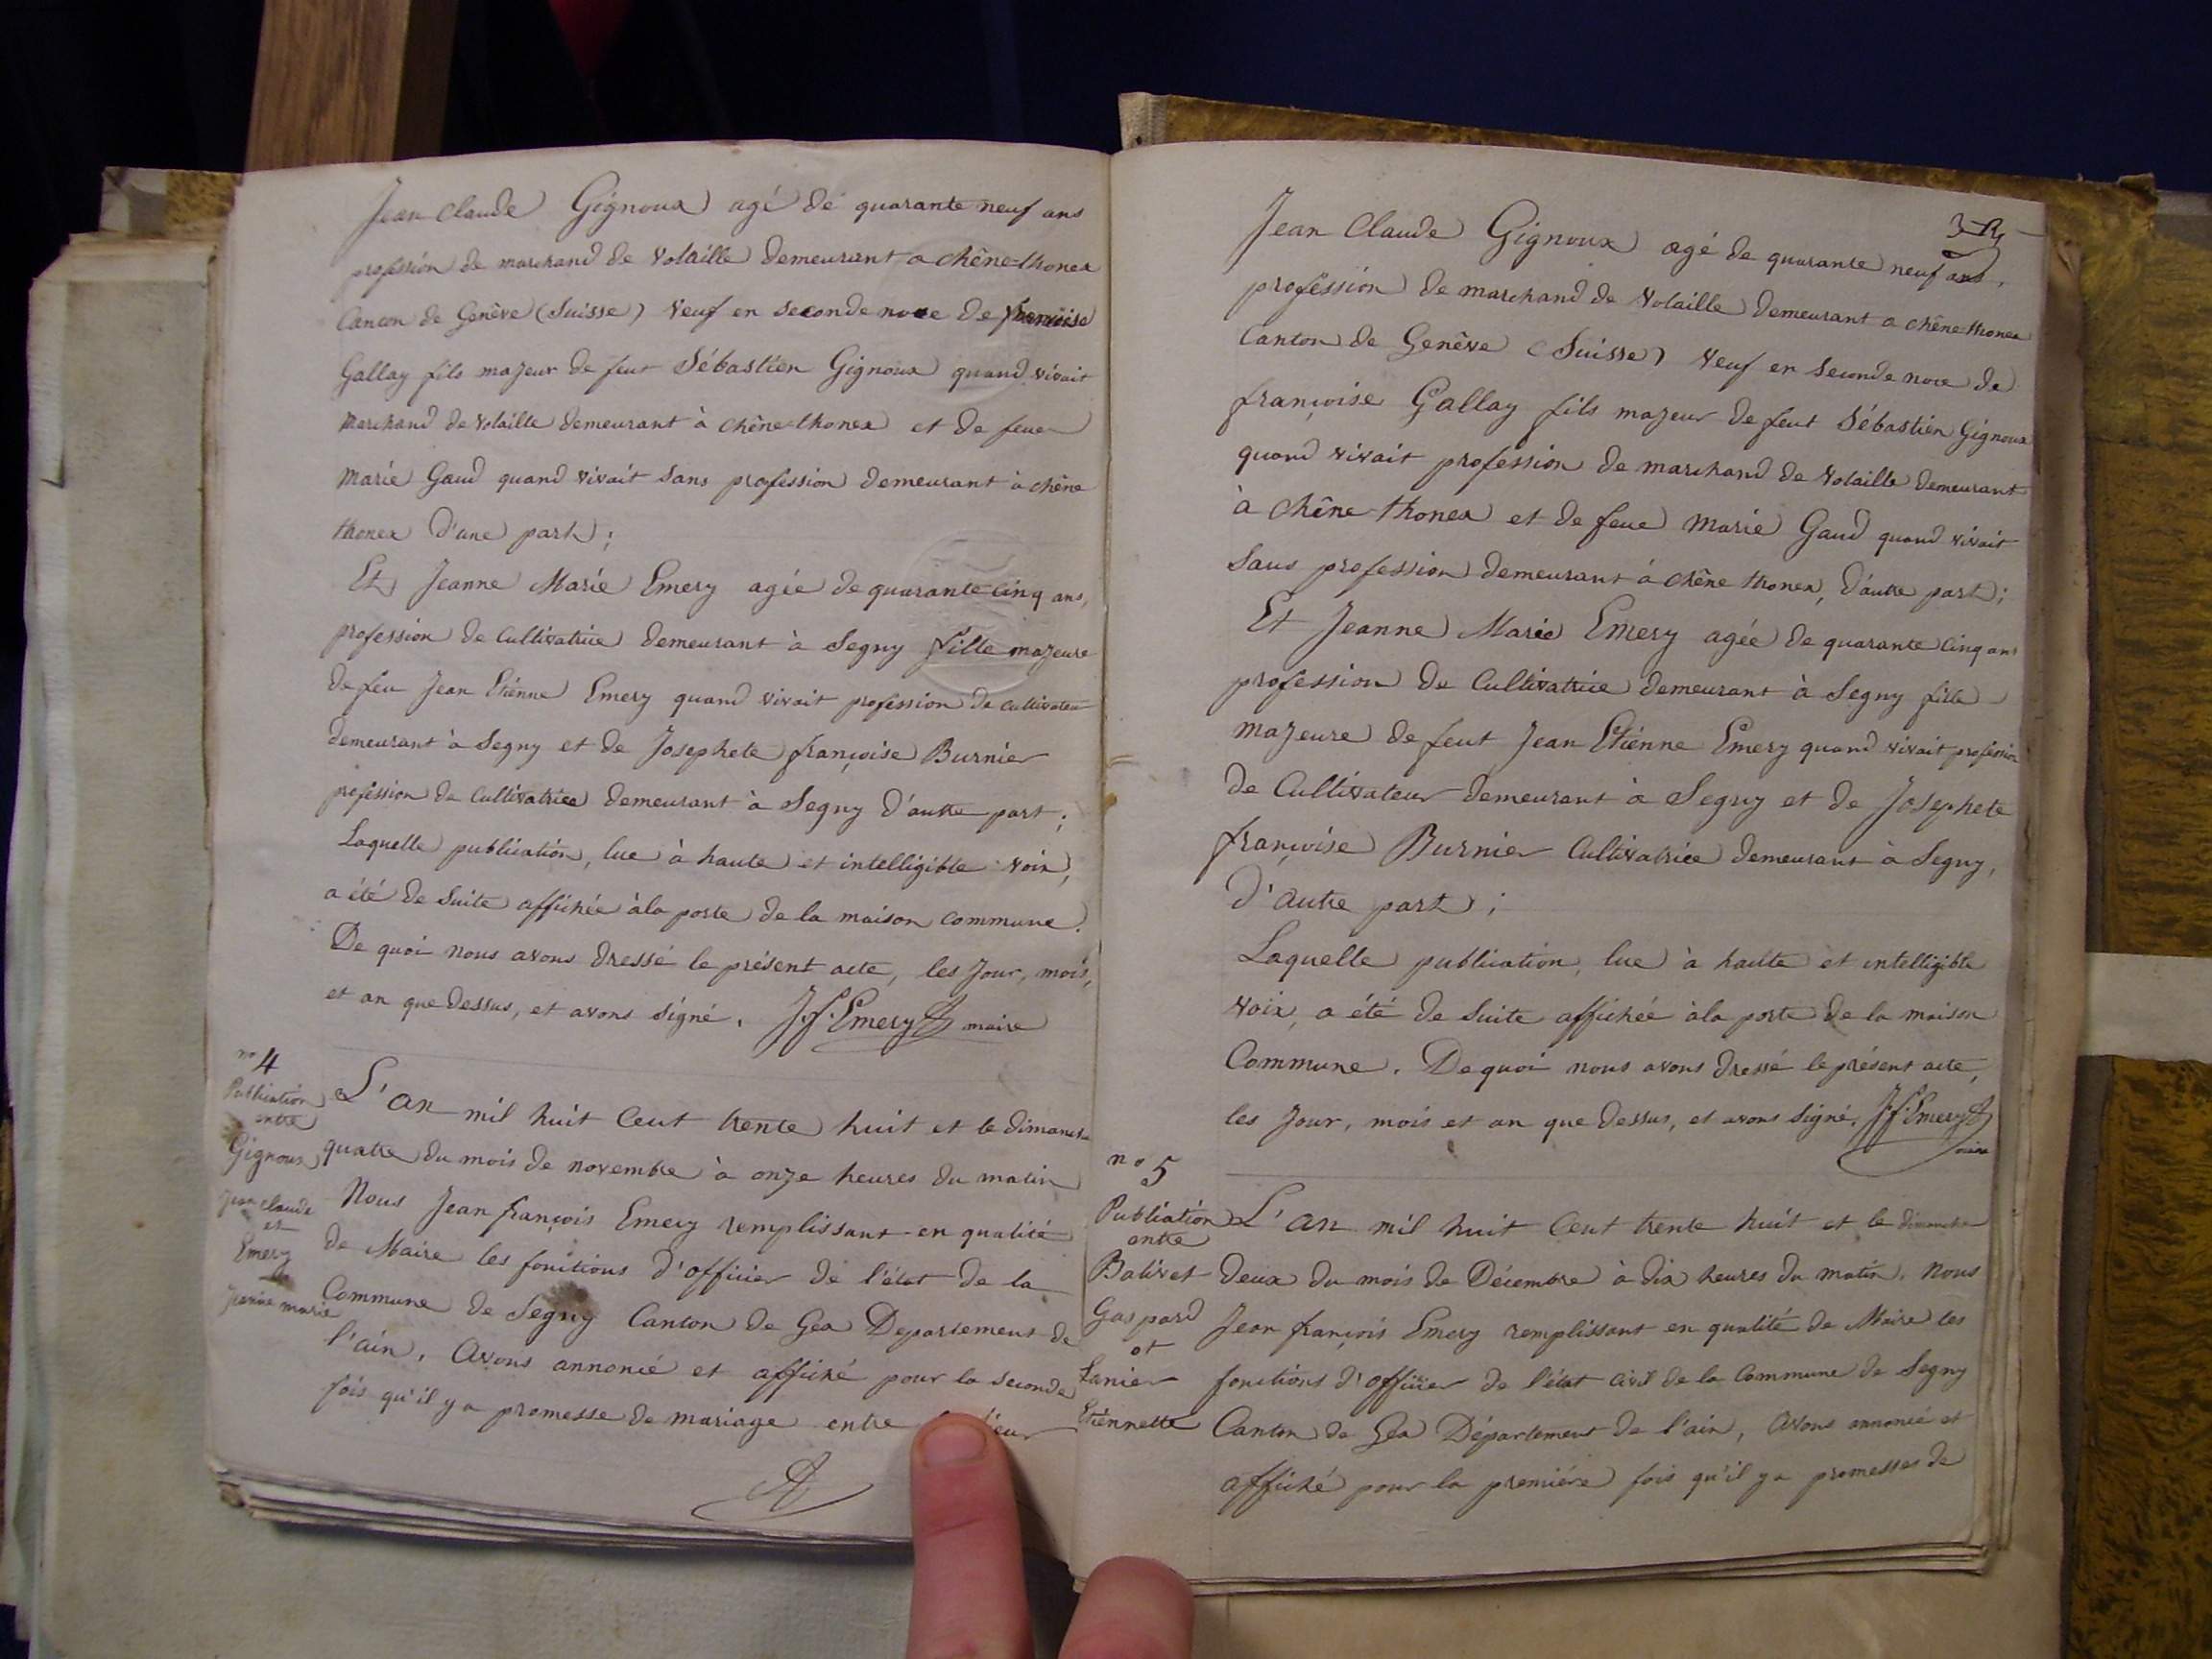 Jean Claude Gignoux agé de quarante neuf ans
profession de marchand de Volaille demeurant a chêne-thonex
Canton de Genêve (Suisse) Veuf en seconde noce de françoise
Gallay fils majeur de feut Sébastien Gignoux quand vivait
marchand de Volaille demeurant à chêne-thonex et de feue
Marie Gaud quand vivait sans profession demeurant à chêne
thonex D'une part;
Et Jeanne Marie Emery agée de quarante cinq ans,
profession de Cultivatrice demeurant à Segny fille majeure
de feu Jean Etienne Emery quand vivait profession de cultivateur
demeurant à Segny et de Josephete françoise Burnier
profession de Cultivatrice demeurant à Segny D'autre part;
Laquelle publication, lue à haute et intelligible voix,
a été de Suite affichée à la porte de la maison commune.
De quoi nous avons dressé le présent acte, les Jour, mois,
et an que dessus, et avons signé. J.f. Emery maire
no 4
Publication
entre
Gignoux
Jean claude
et
Emery
Jeanne marie
L'an mil huit Cent trente huit et le dimanche
quatre du mois de novembre à onze heures du matin
Nous Jean françois Emery remplissant en qualité
de Maire les fonctions d'officier de l'état de la
Commune de Segny Canton de Gex Departement de
l'ain. Avons annoncé et affiché pour la seconde
fois qu'il y a promesse de mariage entre
3
Jean Claude Gignoux agé de quarante neuf ans,
profession de marchand de Volaille demeurant a chêne-thonex
Canton de Genêve (Suisse) Veuf en seconde noce de
françoise Gallay fils majeur de feut Sébastien Gignoux
quand vivait profession de marchand de Volaille demeurant
à chêne-thonex et de feue Marie Gaud quand vivait
Sans profession demeurant à chêne thonex, D'autre part;
Et Jeanne Marie Emery agée de quarante cinq ans
profession de Cultivatrice demeurant à Segny fille
majeure de feut Jean Etienne Emery quand vivait profession
de Cultivateur demeurant à Segny et de Josephete
françoise Burnier Cultivatrice demeurant à Segny,
D'autre part;
Laquelle publication, lue à haute et intelligible
voix, a été de Suite affichée à la porte de la maison
Commune. De quoi nous avons dressé le présent acte,
les Jour, mois et an que dessus, et avons signé. J.f. Emery
maire
no 5
Publication
entre
Balivet
Gaspard
et
Lanier
Etiennette
L'an mil huit Cent trente huit et le dimanche
deux du mois de Décembre à dix heures du matin. Nous
Jean françois Emery remplissant en qualité de Maire les
fonctions d'officier de l'état civil de la Commune de Segny
Canton de Gex Département de l'ain, Avons annoncé et
affiché pour la première fois qu'il y a promesses de